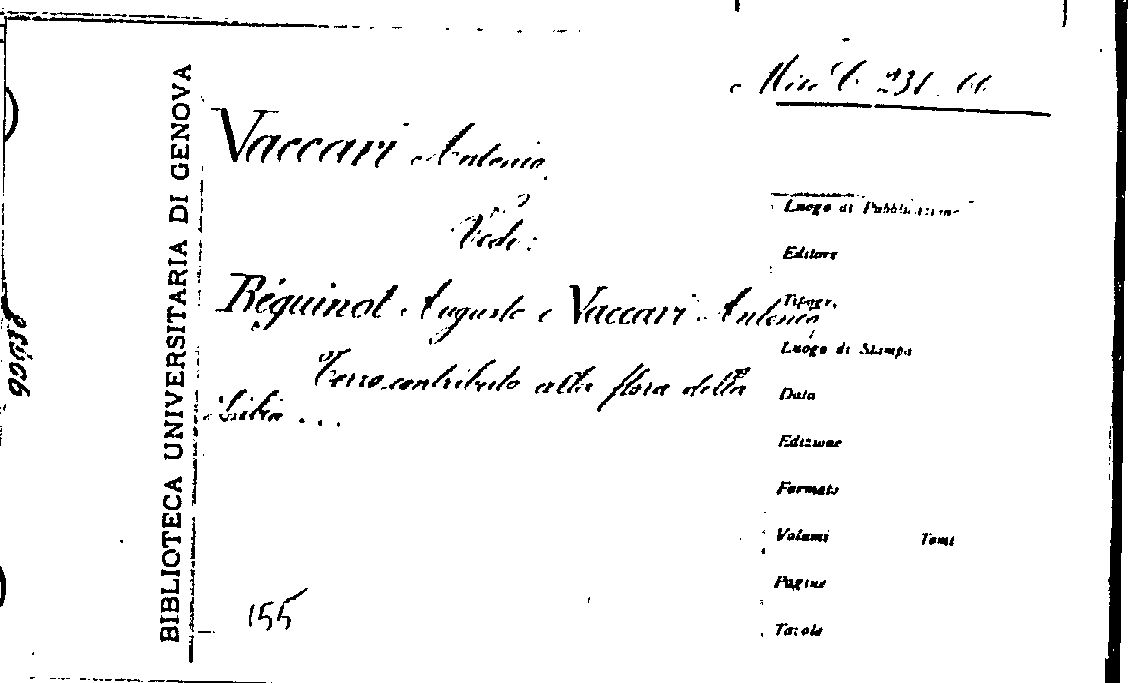 Misc. C 231. 66
Vaccari Antonio.
Vedi:
Béguinot Augusto e Vaccari Antonio
Terzo contributo alla flora della
Libia ...
155
BIBLIOTECA UNIVERSITARIA DI GENOVA
Luogo di Pubblicazione
Editore
Tipogr.
Luogo di Stampa
Data
Edizione
Formato
Volumi Tomi
Pagine
Tavole